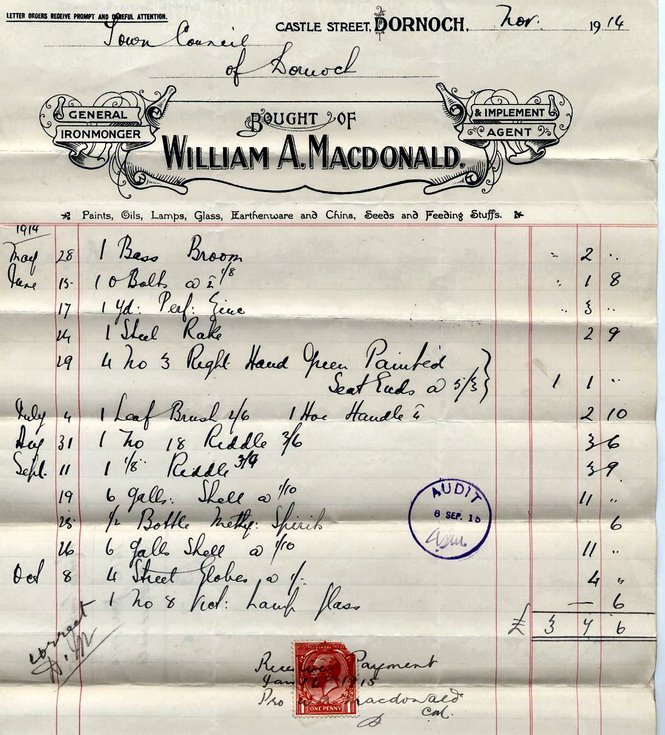 LETTER ORDERS RECEIVE PROMPT AND CAREFUL ATTENTION.
CASTLE STREET, DORNOCH, Nov. 1914
Town Council
of Dornoch
GENERAL IRONMONGER
BOUGHT OF
& IMPLEMENT AGENT
WILLIAM A. MACDONALD.
Paints, Oils, Lamps, Glass, Earthenware and China, Seeds and Feeding Stuffs.
1914
May 28 1 Bass Broom " 2 "
June 15 10 Bolts @ 1/8 " 1 8
17 1 yd: Perf: Zinc " 3 "
24 1 Steel Rake 2 9
29 4 No 3 Right Hand Green Painted
Seat Ends @ 5/3 1 1 "
July 4 1 Leaf Brush 2/6 1 Hoe Handle 2 10
Aug 31 1 No 18 Riddle 3/6 3 6
Sept. 11 1 1/8 Riddle 3/9 3 9
19 6 galls: Shell @ 1/10 11 "
25 1/2 Bottle Methy: Spirits 6
26 6 galls Shell @ 1/10 11 "
Oct 8 4 Street Globes @ 1/- 4 "
1 No 8 Vict: Lamp Glass — 6
£ 3 7 6
AUDIT
8 SEP. 15
correct
Received Payment
Jan 1915
Pro W A Macdonald
ONE PENNY